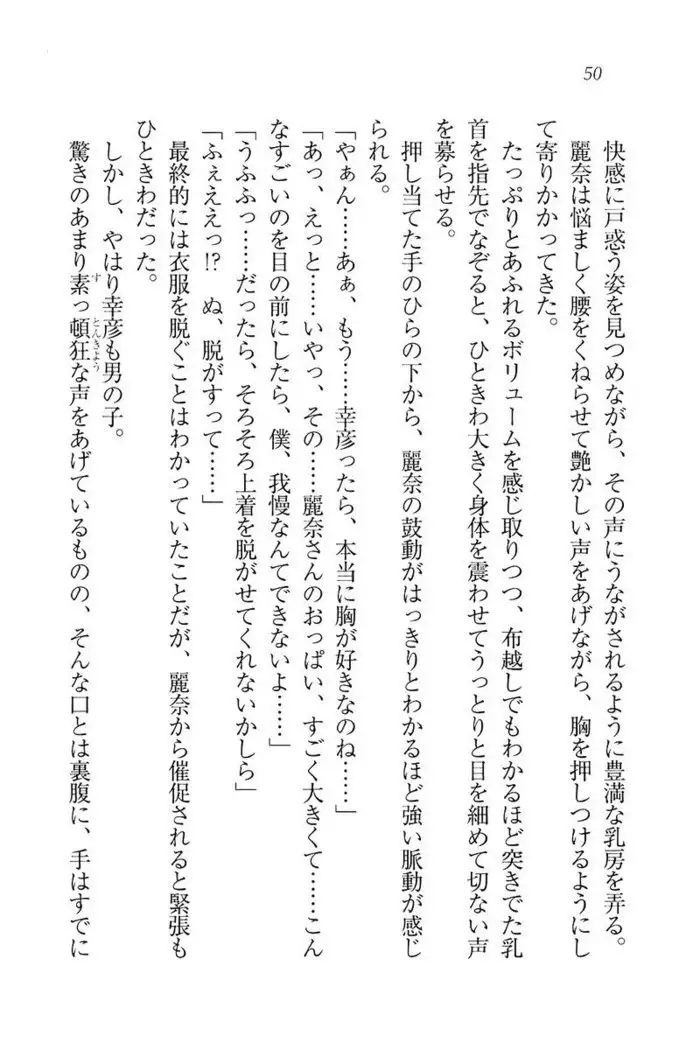 50
快感に戸惑う姿を見つめながら、その声にうながされるように豊満な乳房を弄る。
麗奈は悩ましく腰をくねらせて艶かしい声をあげながら、胸を押しつけるようにし
て寄りかかってきた。
たっぷりとあふれるボリュームを感じ取りつつ、布越しでもわかるほど突きでた乳
首を指先でなぞると、ひときわ大きく身体を震わせてうっとりと目を細めて切ない声
を募らせる。
押し当てた手のひらの下から、麗奈の鼓動がはっきりとわかるほど強い脈動が感じ
られる。
「やぁん……あぁ、もう……幸彦ったら、本当に胸が好きなのね……」
「あっ、えっと……いやっ、その……麗奈さんのおっぱい、すごく大きくて……こん
なすごいのを目の前にしたら、僕、我慢なんてできないよ……」
「うふふっ……だったら、そろそろ上着を脱がせてくれないかしら」
「ふぇええっ!?　ぬ、脱がすって……」
最終的には衣服を脱ぐことはわかっていたことだが、麗奈から催促されると緊張も
ひときわだった。
しかし、やはり幸彦も男の子。
驚きのあまり素っ頓狂な声をあげているものの、そんな口とは裏腹に、手はすでに